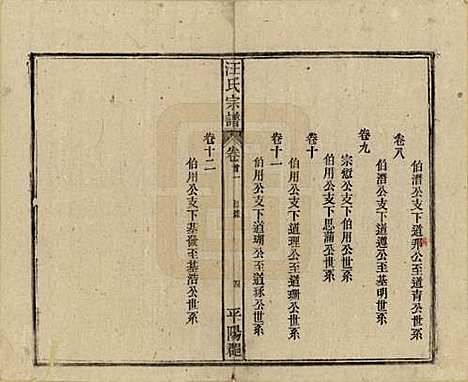 卷八
伯潛公支下道珩公至道青公世系
卷九
伯潛公支下道遵公至基明公世系
宗愷公支下伯用公世系
卷十
伯用公支下思蒲公世系
卷十一
伯用公支下道理公至道珊公世系
伯用公支下道瑚公至道琢公世系
汪氏宗譜
卷首一
目錄
四
平陽郡
卷十二
伯用公支下基嶽至基浩公世系